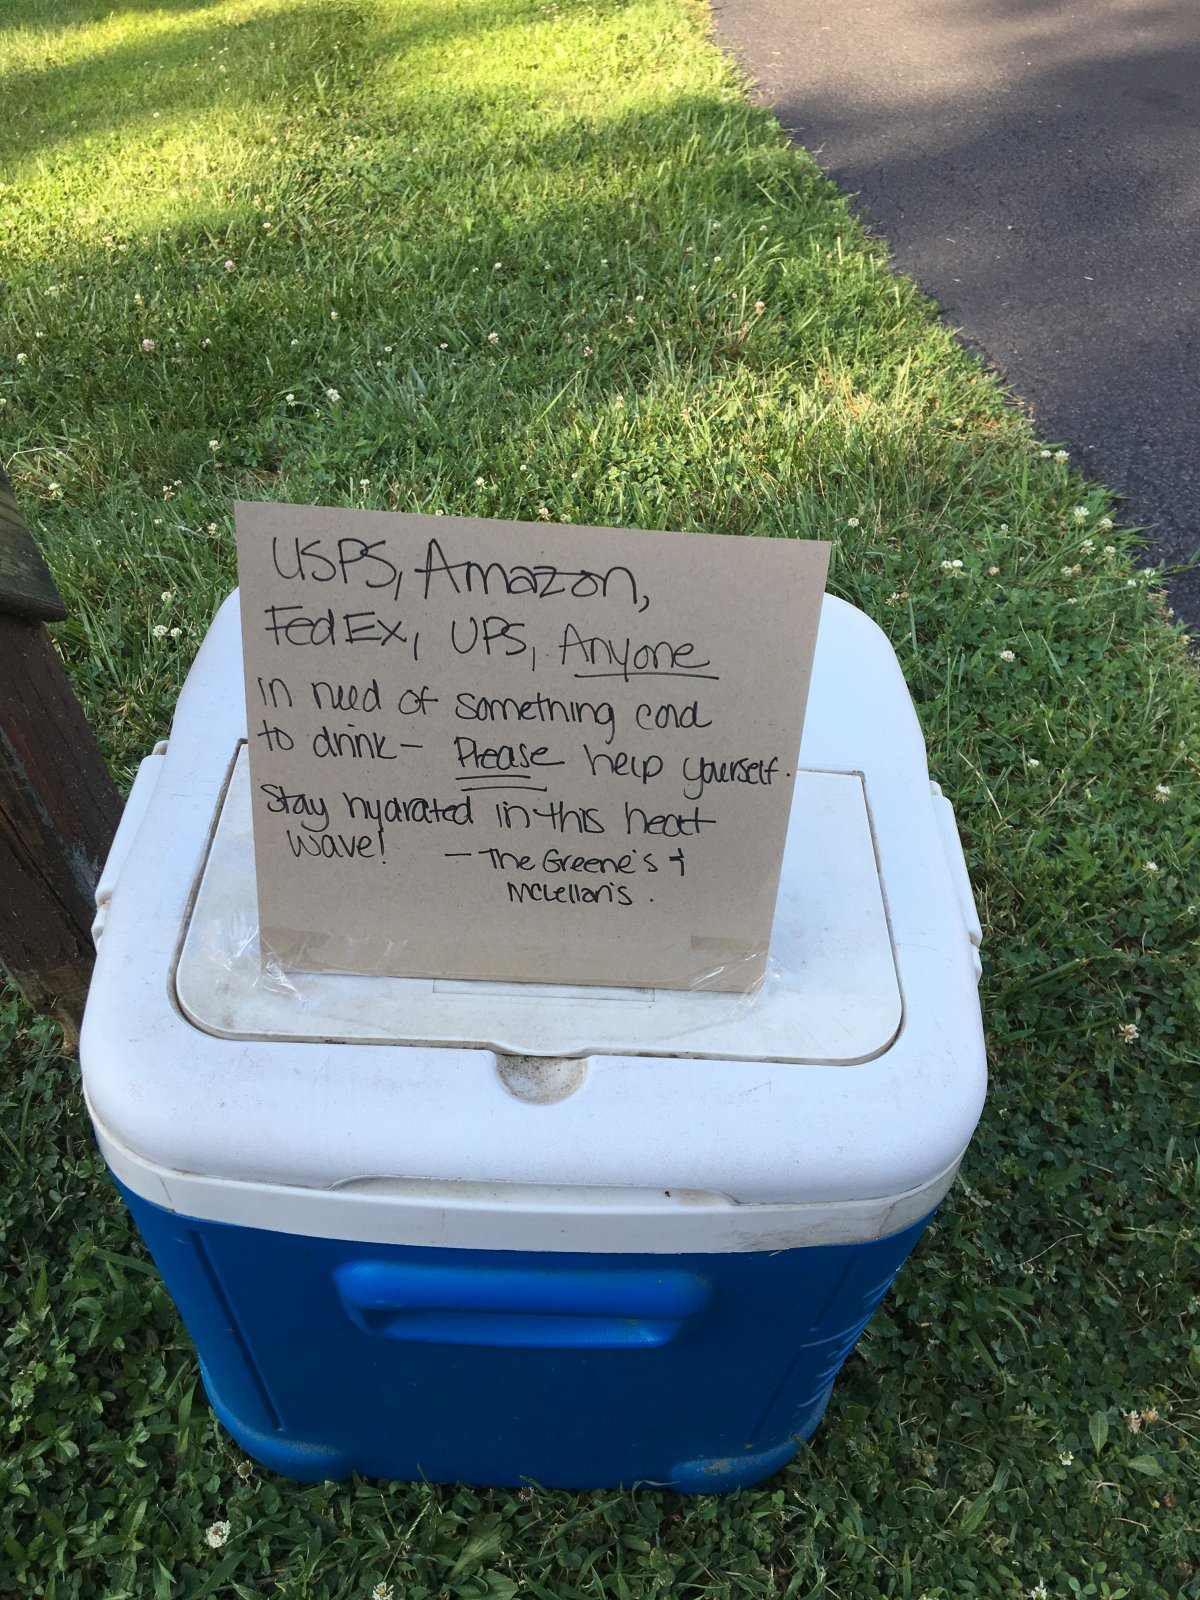 USPS, Amazon,
FedEx, UPS, Anyone
in need of something cold
to drink - Please help yourself.
Stay hydrated in this heat
wave!   - The Greene's +
McLellan's.